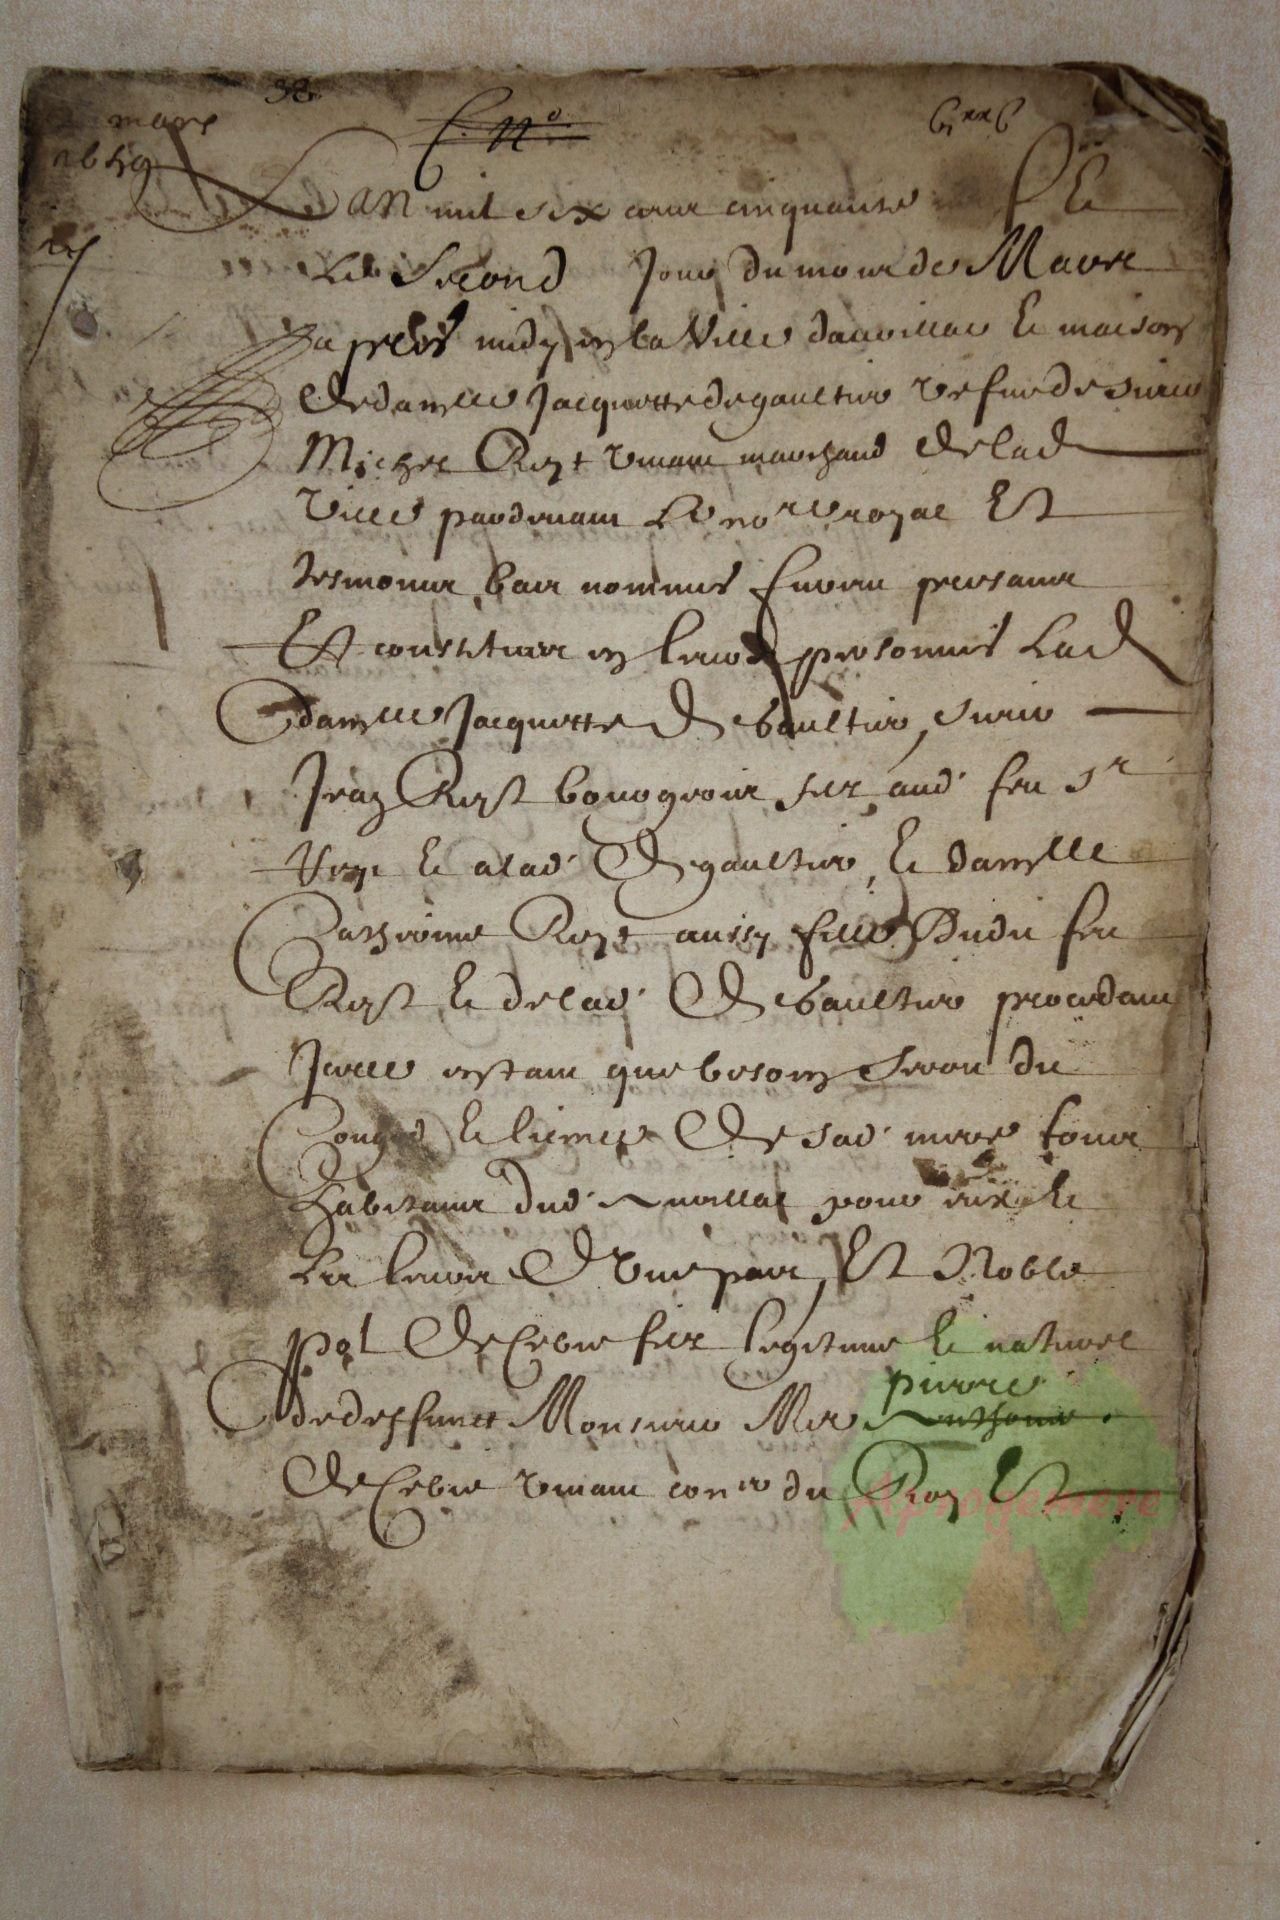 38
mars
C. N°.
6xx6
Lan mil six cens cinquante
Le Second Jour du mois de Mars
apres midy en la Ville dauvillar & maison
de dam.lle Jacquette de gaultier vefue de Sieur
Michel Rey vivant marchand de lad
Ville pardevant Le no.re royal Et
tesmoins bas nommes furent presans
Et constitues en leurs personnes Lad
dam.lle Jacquette De Gaultier, Sieur
Jean Rey bourgeois filz aud feu Sr
Rey & a lad De gaultier, & dam.lle
Catherine Rey aussy fille Dudit feu
Rey & de lad De Gaultier procedant
Jcelle en tant que besoin Seroit du
Conge & licence De sad mere tous
habitans dud Auvillar pour eux &
Les leurs D'Une part, Et Noble
pol De fils legitime & naturel
de deffunct Monsieur Me Anthoine
pierre
De vivant con.er du Roy Et
Aprogemere